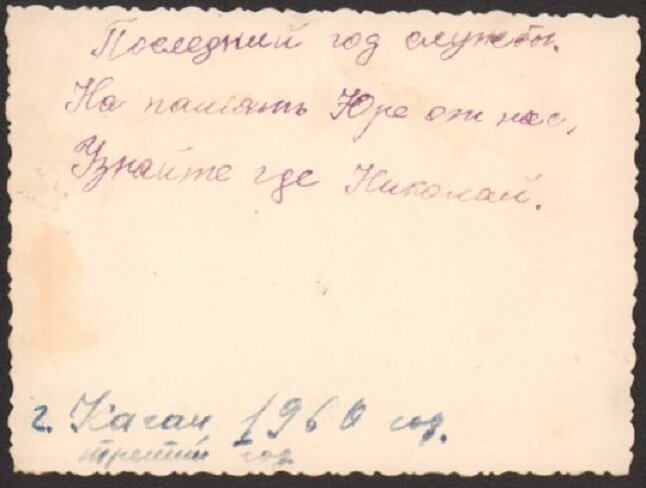 Последний год службы.
На память Юре от нас,
Узнайте где Николай.
г. Каган 1960 год.
третий год